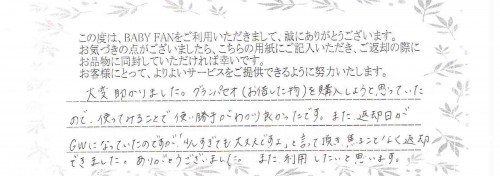 この度は、BABY FANをご利用いただきまして、誠にありがとうございます。
お気づきの点がございましたら、こちらの用紙にご記入いただき、ご返却の際に
お品物に同封していただければ幸いです。
お客様にとって、よりよいサービスをご提供できるように努力いたします。
大変助かりました。グランパセオ(お借した物)を購入しようと思っていた
ので、使ってみることで使い勝手がわかり良かったです。また、返却日が
GWになっていたのですが、「少しすぎても大丈夫ですよ」と言って頂き焦ることなく返却
できました。ありがとうございました。また利用したいと思います。